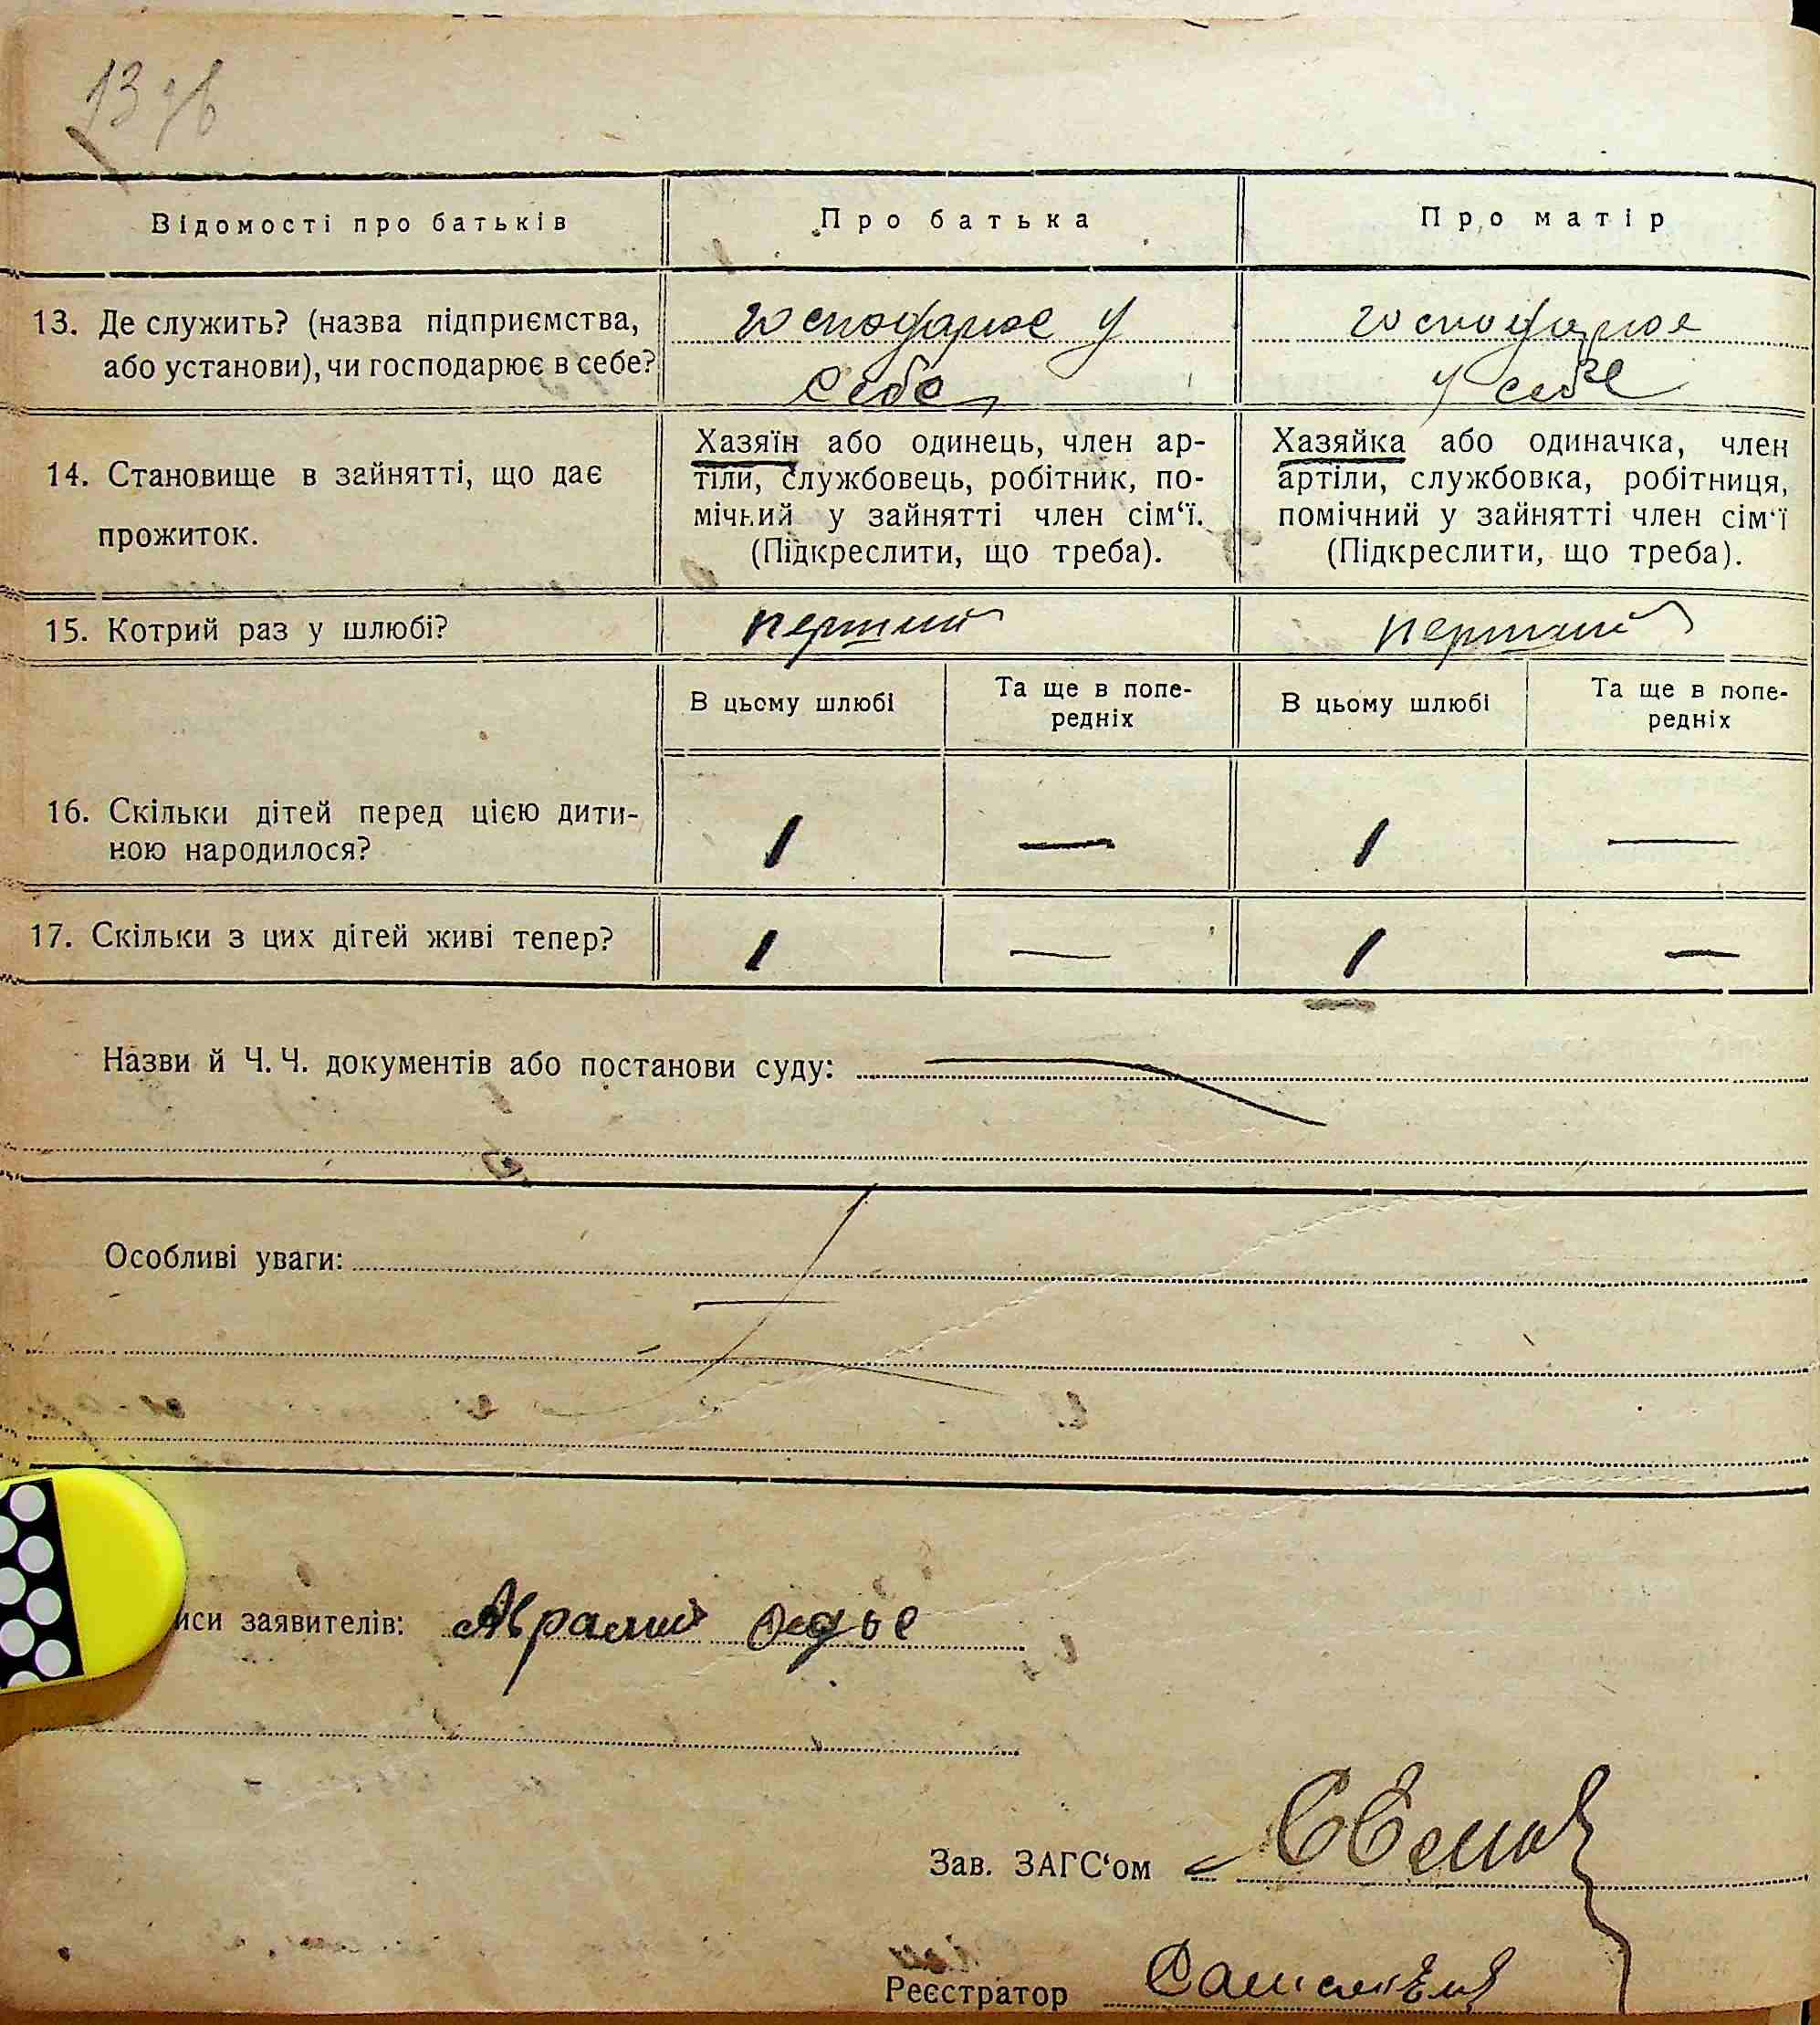 13 зв
Відомості про батьків
Про батька
Про матір
13. Де служить? (назва підприємства,
або установи), чи господарює в себе?
господарює у
себе
господарює
у себе
14. Становище в зайнятті, що дає
прожиток.
Хазяїн або одинець, член ар-
тіли, службовець, робітник, по-
мічний у зайнятті член сім‘ї.
(Підкреслити, що треба).
Хазяйка або одиначка, член
артіли, службовка, робітниця,
помічний у зайнятті член сім‘ї
(Підкреслити, що треба).
15. Котрий раз у шлюбі?
перший
перший
В цьому шлюбі
Та ще в попе-
редніх
В цьому шлюбі
Та ще в попе-
редніх
16. Скільки дітей перед цією дити-
ною народилося?
1
—
1
—
17. Скільки з цих дітей живі тепер?
1
—
1
—
Назви й Ч. Ч. документів або постанови суду:
Особливі уваги:
иси заявителів:
Зав. ЗАГС‘ом
Реєстратор